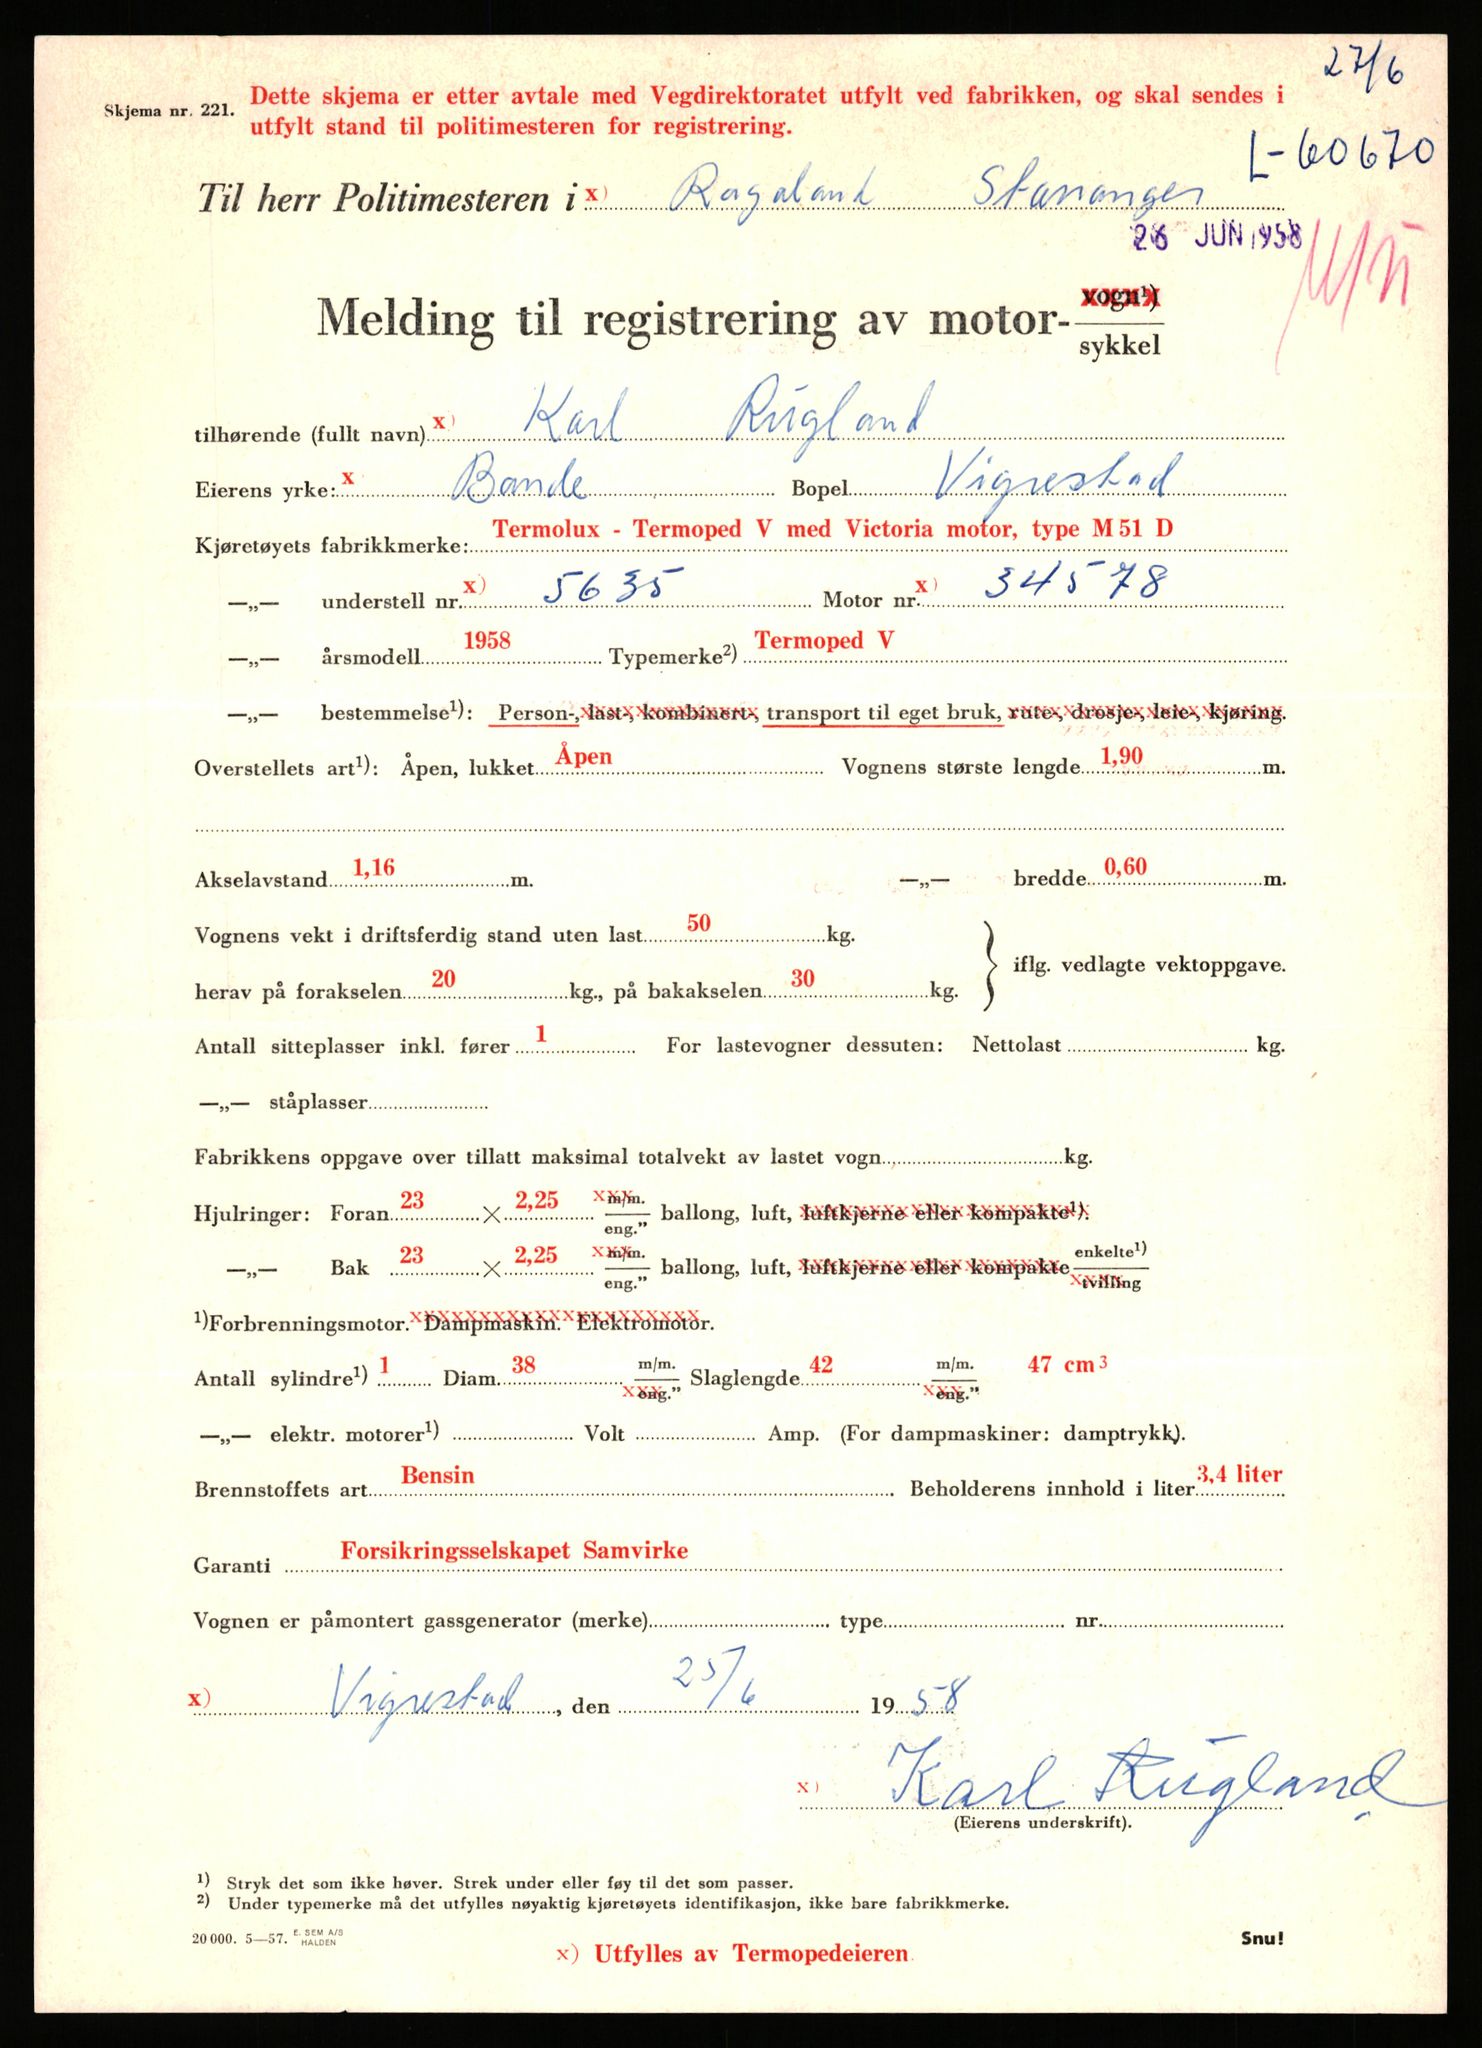 27/6
Skjema nr. 221. Dette skjema er etter avtale med Vegdirektoratet utfylt ved fabrikken, og skal sendes i
utfylt stand til politimesteren for registrering.
L-60670
Til herr Politimesteren i x) Rogaland Stavanger
26 JUN 1958
Melding til registrering av motor- vogn¹)
sykkel
tilhørende (fullt navn) x) Karl Rugland
Eierens yrke: x Bonde Bopel Vigrestad
Kjøretøyets fabrikkmerke: Termolux - Termoped V med Victoria motor, type M 51 D
—„— understell nr. x) 5635 Motor nr. x) 34578
—„— årsmodell 1958 Typemerke²) Termoped V
—„— bestemmelse¹): Person-, last-, kombinert-, transport til eget bruk, rute-, drosje-, leie-, kjøring.
Overstellets art¹): Åpen, lukket Åpen Vognens største lengde 1,90 m.
Akselavstand 1,16 m. —„— bredde 0,60 m.
Vognens vekt i driftsferdig stand uten last 50 kg.
iflg. vedlagte vektoppgave.
herav på forakselen 20 kg., på bakakselen 30 kg.
Antall sitteplasser inkl. fører 1 For lastevogner dessuten: Nettolast kg.
—„— ståplasser
Fabrikkens oppgave over tillatt maksimal totalvekt av lastet vogn kg.
Hjulringer: Foran 23 × 2,25 m/m. eng.” ballong, luft, luftkjerne eller kompakte¹).
—„— Bak 23 × 2,25 m/m. eng.” ballong, luft, luftkjerne eller kompakte enkelte¹) tvilling
¹)Forbrenningsmotor. Dampmaskin. Elektromotor.
Antall sylindre¹) 1 Diam. 38 m/m. eng.” Slaglengde 42 m/m. eng.” 47 cm³
—„— elektr. motorer¹) Volt Amp. (For dampmaskiner: damptrykk).
Brennstoffets art Bensin Beholderens innhold i liter 3,4 liter
Garanti Forsikringsselskapet Samvirke
Vognen er påmontert gassgenerator (merke) type nr.
x) Vigrestad, den 25/6 1958
x) Karl Rugland
(Eierens underskrift).
¹) Stryk det som ikke høver. Strek under eller føy til det som passer.
²) Under typemerke må det utfylles nøyaktig kjøretøyets identifikasjon, ikke bare fabrikkmerke.
20 000. 5—57. E. SEM A/S HALDEN
x) Utfylles av Termopedeieren
Snu!